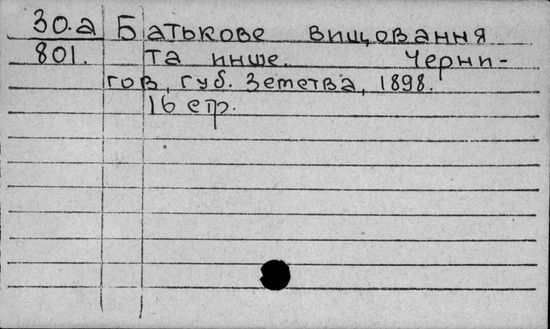 30.а Батькове вищовання
801. та инше. Черни-
гов, губ. Земства, 1898.
16 стр.